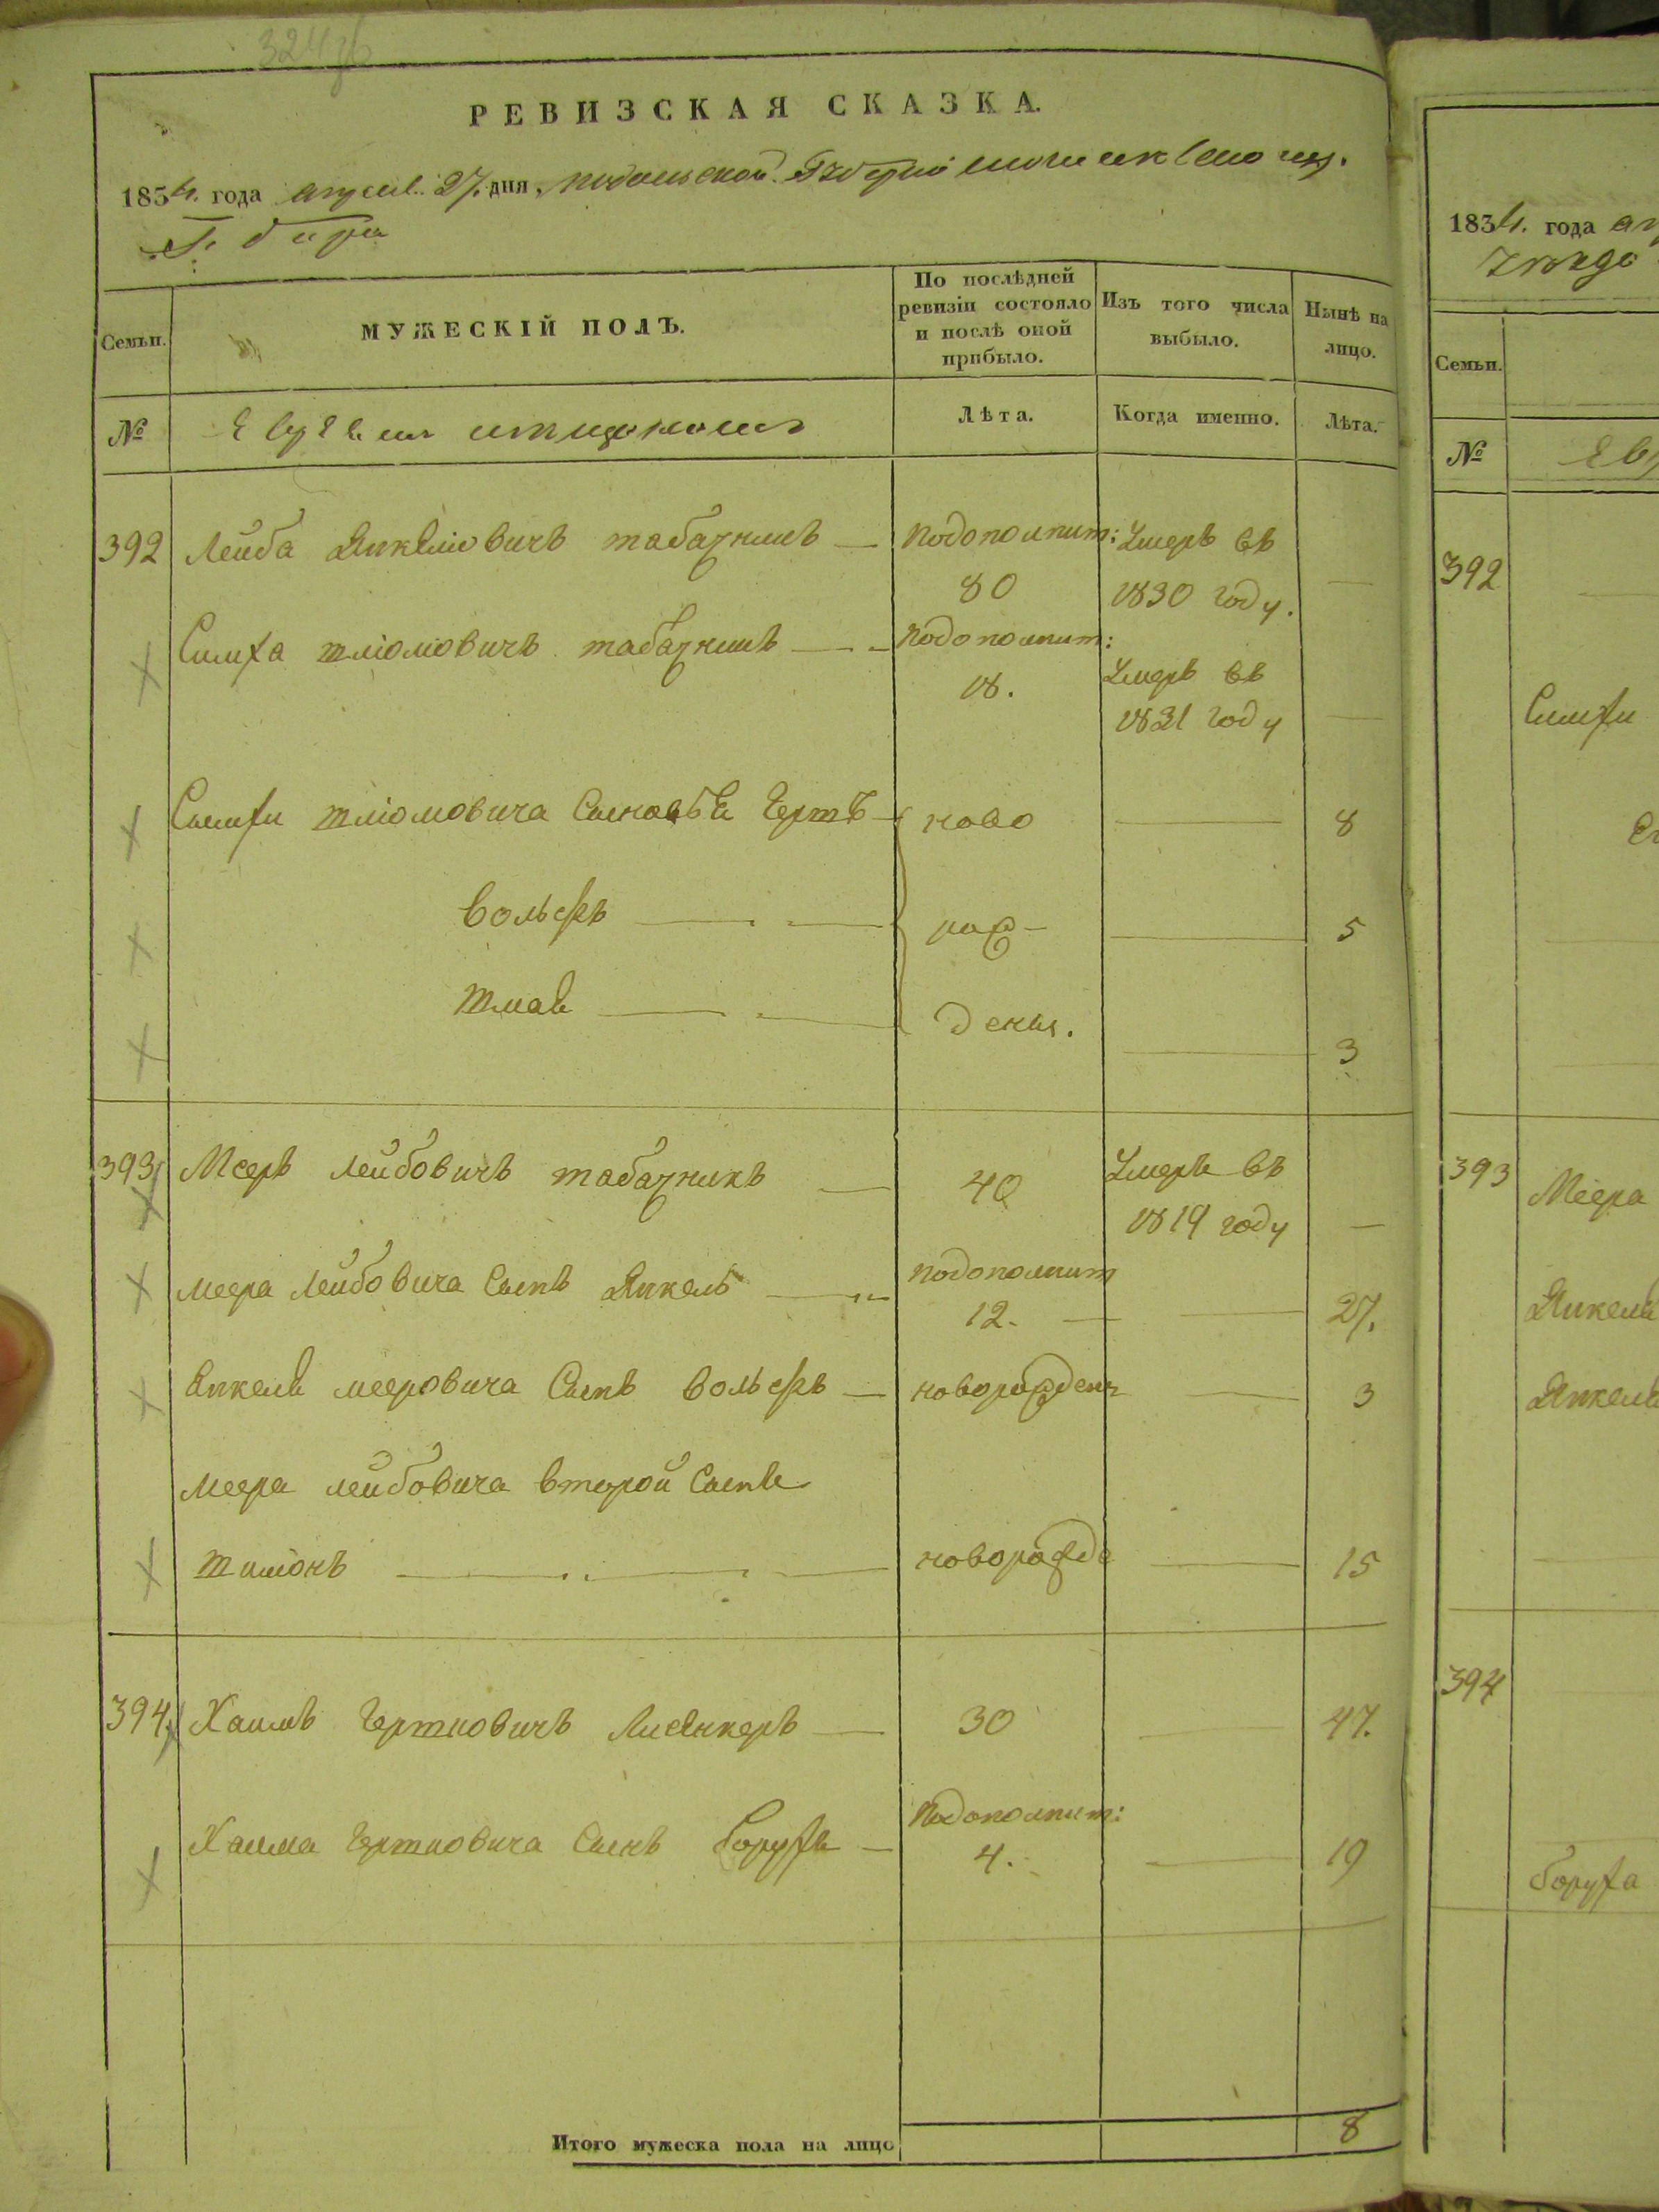 РЕВИЗСКАЯ СКАЗКА.
1834. года апреля 27. дня, подольской Губерніи
Семьи.
МУЖЕСКІЙ ПОЛЪ.
По послѣдней ревизіи состояло и послѣ оной прибыло.
Изъ того числа выбыло.
Нынѣ на лицо.
№
Лѣта.
Когда именно.
Лѣта.
392 Лейба Янкелiовичъ табачникъ Подополнит: Умеръ въ
80 1830 году.
Симха шліомовичъ табачникъ Подополнит:
18. Умеръ въ
1831 году
Симхи шліомовича Сыновья Гершъ ново 8
вольфъ рож- 5
денъ. 3
393 Мееръ лейбовичъ табачникъ 40 Умеръ въ
1819 году
меера лейбовича Сынъ Янкель подополнит
12. 27.
Янкеля мееровича Сынъ вольфъ новорожден 3
меера лейбовича второй Сынъ
шимонъ новорожде 15
394 Хаимъ Гершковичъ 30 47.
Хаима Гершковича Сынъ Борухъ Подополнит:
4. 19
Итого мужеска пола на лицо 8
1834. года
Семьи.
№
392
Симхи
393
Меера
Янкеля
Янкеля
394
Боруха